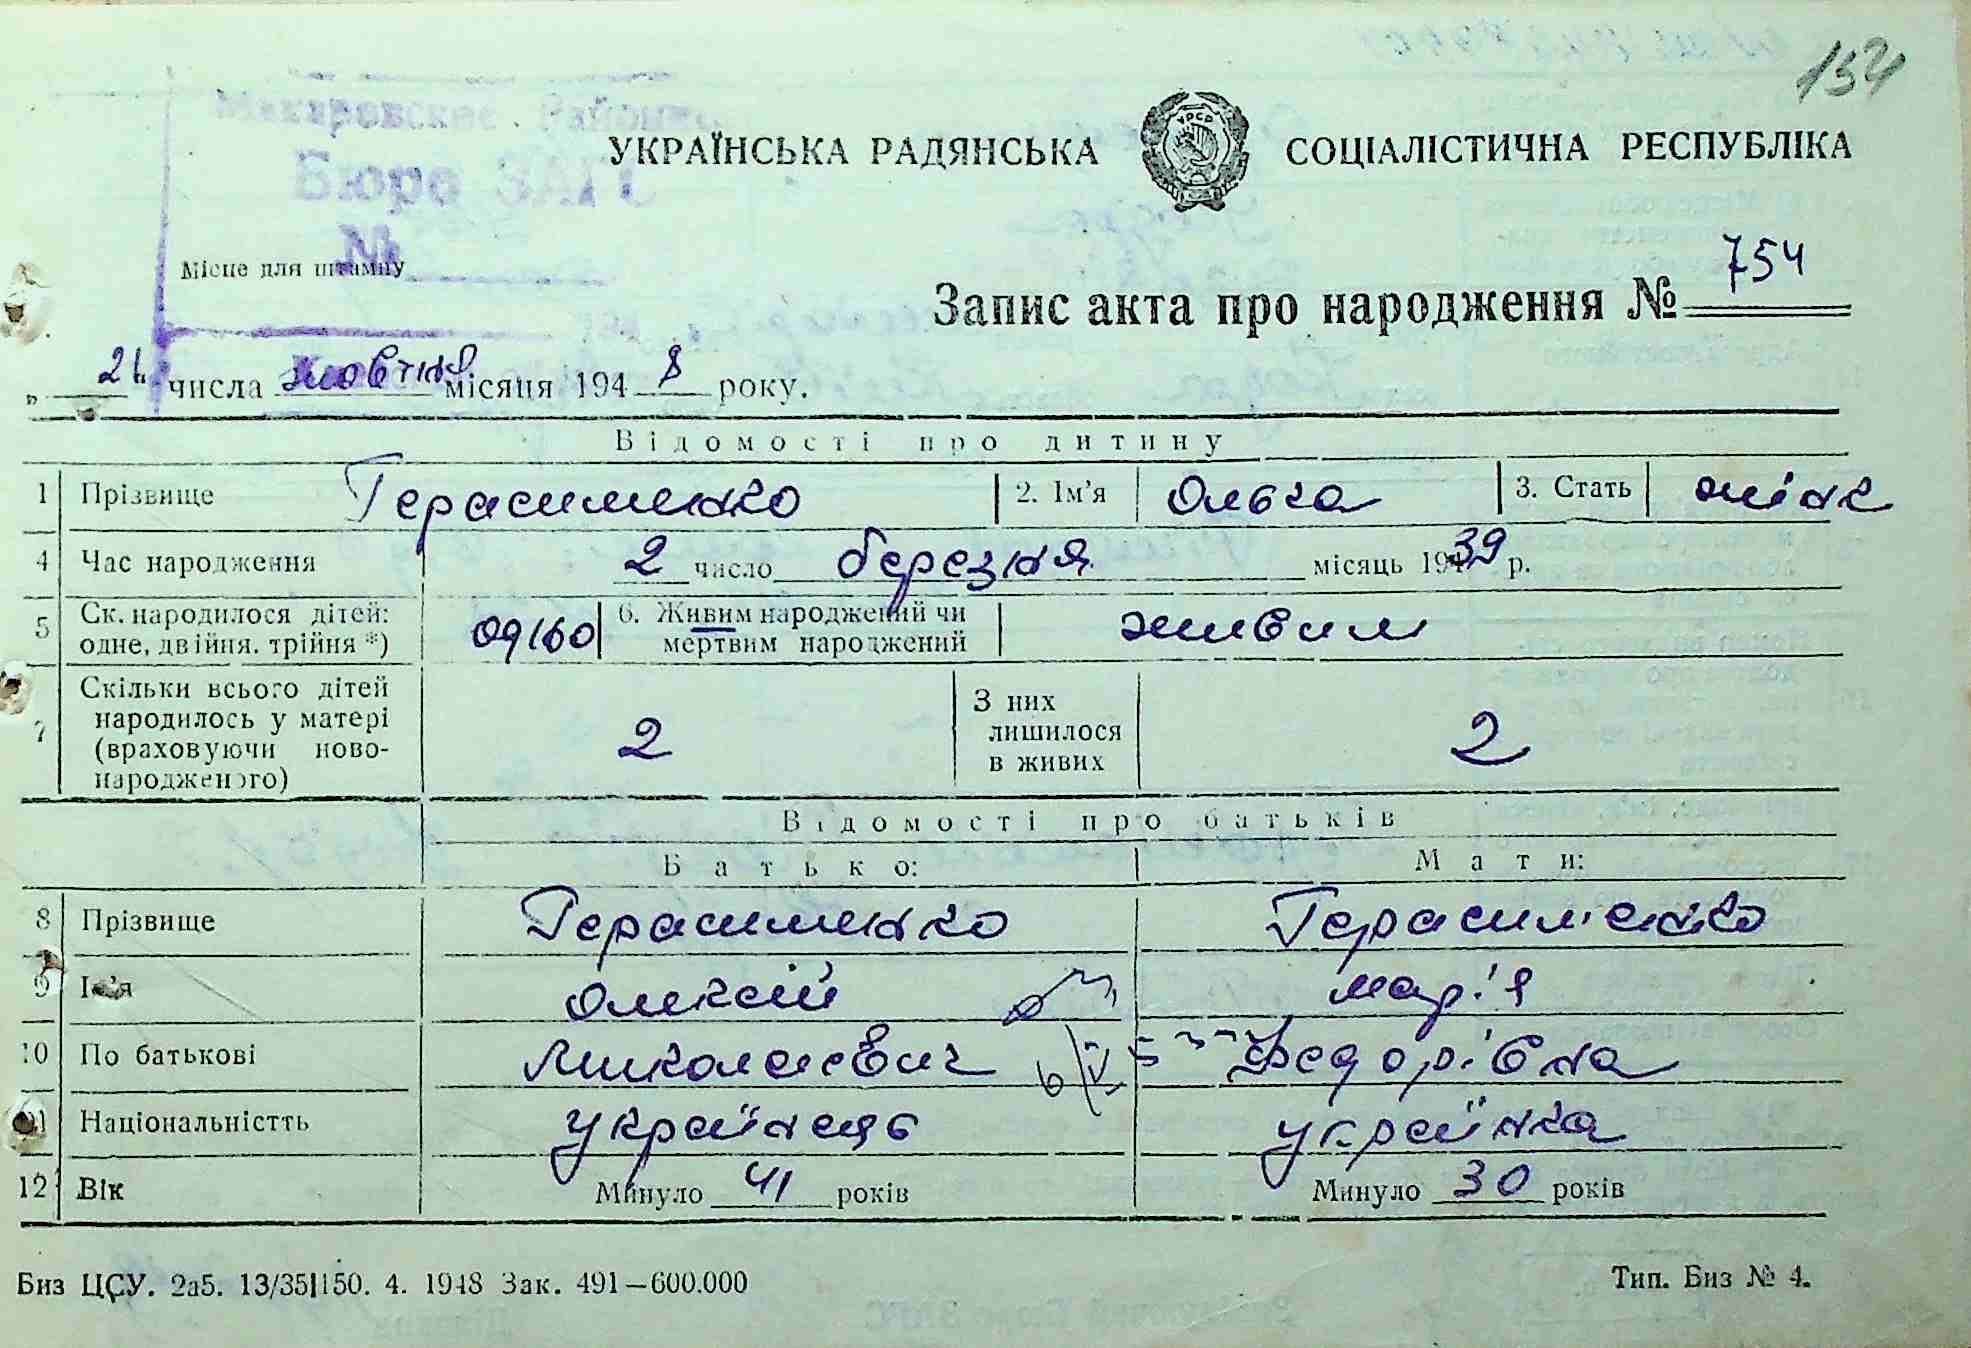 154
Макаровское Районн
Бюро ЗАГС
№
УКРАЇНСЬКА РАДЯНСЬКА СОЦІАЛІСТИЧНА РЕСПУБЛІКА
УРСР
Місце для штампу
Запис акта про народження № 754
„ 21 " числа жовтня місяця 1948 року.
Відомості про дитину
1 Прізвище Герасименко 2. Ім'я Ольга 3. Стать жінк
4 Час народження 2 число березня місяць 1939 р.
5 Ск. народилося дітей: одне, двійня, трійня *) одно 6. Живим народжений чи мертвим народжений живим
7 Скільки всього дітей народилось у матері (враховуючи ново-народженого) 2 З них лишилося в живих 2
Відомості про батьків
Батько: Мати:
8 Прізвище Герасименко Герасименко
9 Ім'я Олексій Марія
10 По батькові Миколаєвич Федорівна
11 Національністть українець українка
12 Вік Минуло 41 років Минуло 30 років
Биз ЦСУ. 2а5. 13/35|150. 4. 1948 Зак. 491—600.000 Тип. Биз № 4.